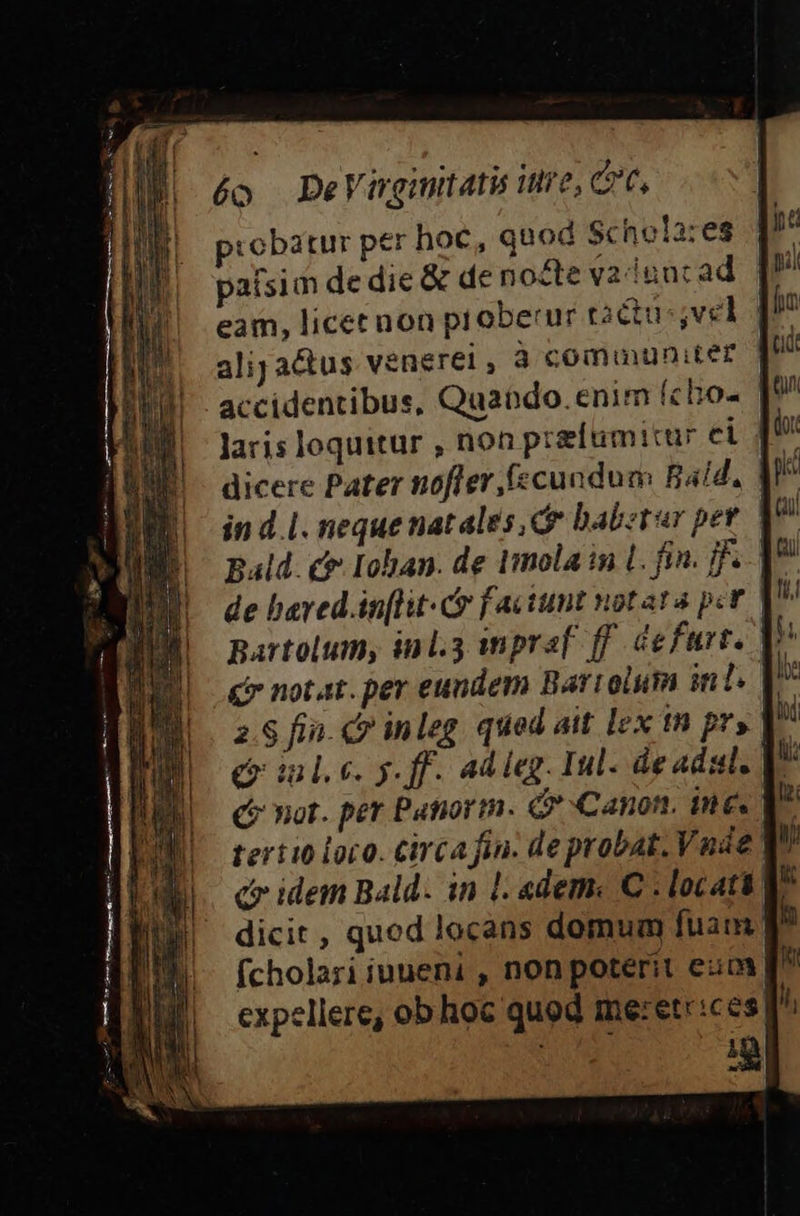 60 De Virginitatis iure, &c,
probatur per hoc, quod Scholares
paſsim de die & de nocte vadunt ad
eam, licet non probetur tactus, vel
alij actus venerei, à communiter
accidentibus, Quando. enim ſcho-
laris loquitur , non præſumitur ei
dicere Pater noſter, ſecundum Bald.
in d. l. neque natales, & habetur per
Bald. & Iohan. de Imola in l. fin. ff.
de hæred. inſtit. & faciunt notata per
Bartolum, in l. 3 in præf ff de furt.
& notat. per eundem Bartolum in l.
2. § fin. & in leg quod ait lex in pr,
& in l. 6. 5. ff. ad leg. Iul. de adul.
& not. per Panorm. & Canon. in c.
tertio loco. circa fin. de probat. Vnde
& idem Bald. in l. adem. C. locati
dicit , quod locans domum ſuam
ſcholari iuueni , non poterit eum
expellere, ob hoc quod meretrices